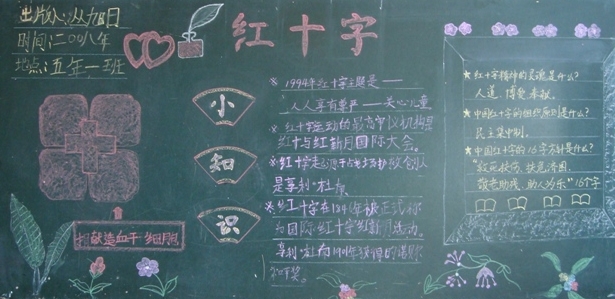 出版人:丛旭日
时间:二〇〇八年
地点:五年一班
红十字
小
知
识
※1994年红十字主题是——
人人享有尊严——关心儿童
※红十字运动的最高审议机构是
红十与红新月国际大会。
※红十字起源于战场救护创始人
是亨利·杜南
※红十字在1984年被正式称
为国际红十字红新月运动。
亨利·杜南1901年获得的诺贝尔
和平奖。
捐献造血干细胞
★红十字精神的灵魂是什么?
人道、博爱、奉献。
★中国红十字的组织原则是什么?
民主集中制。
★中国红十字的16字方针是什么?
"救死扶伤、扶危济困、
敬老助残、助人为乐"16字